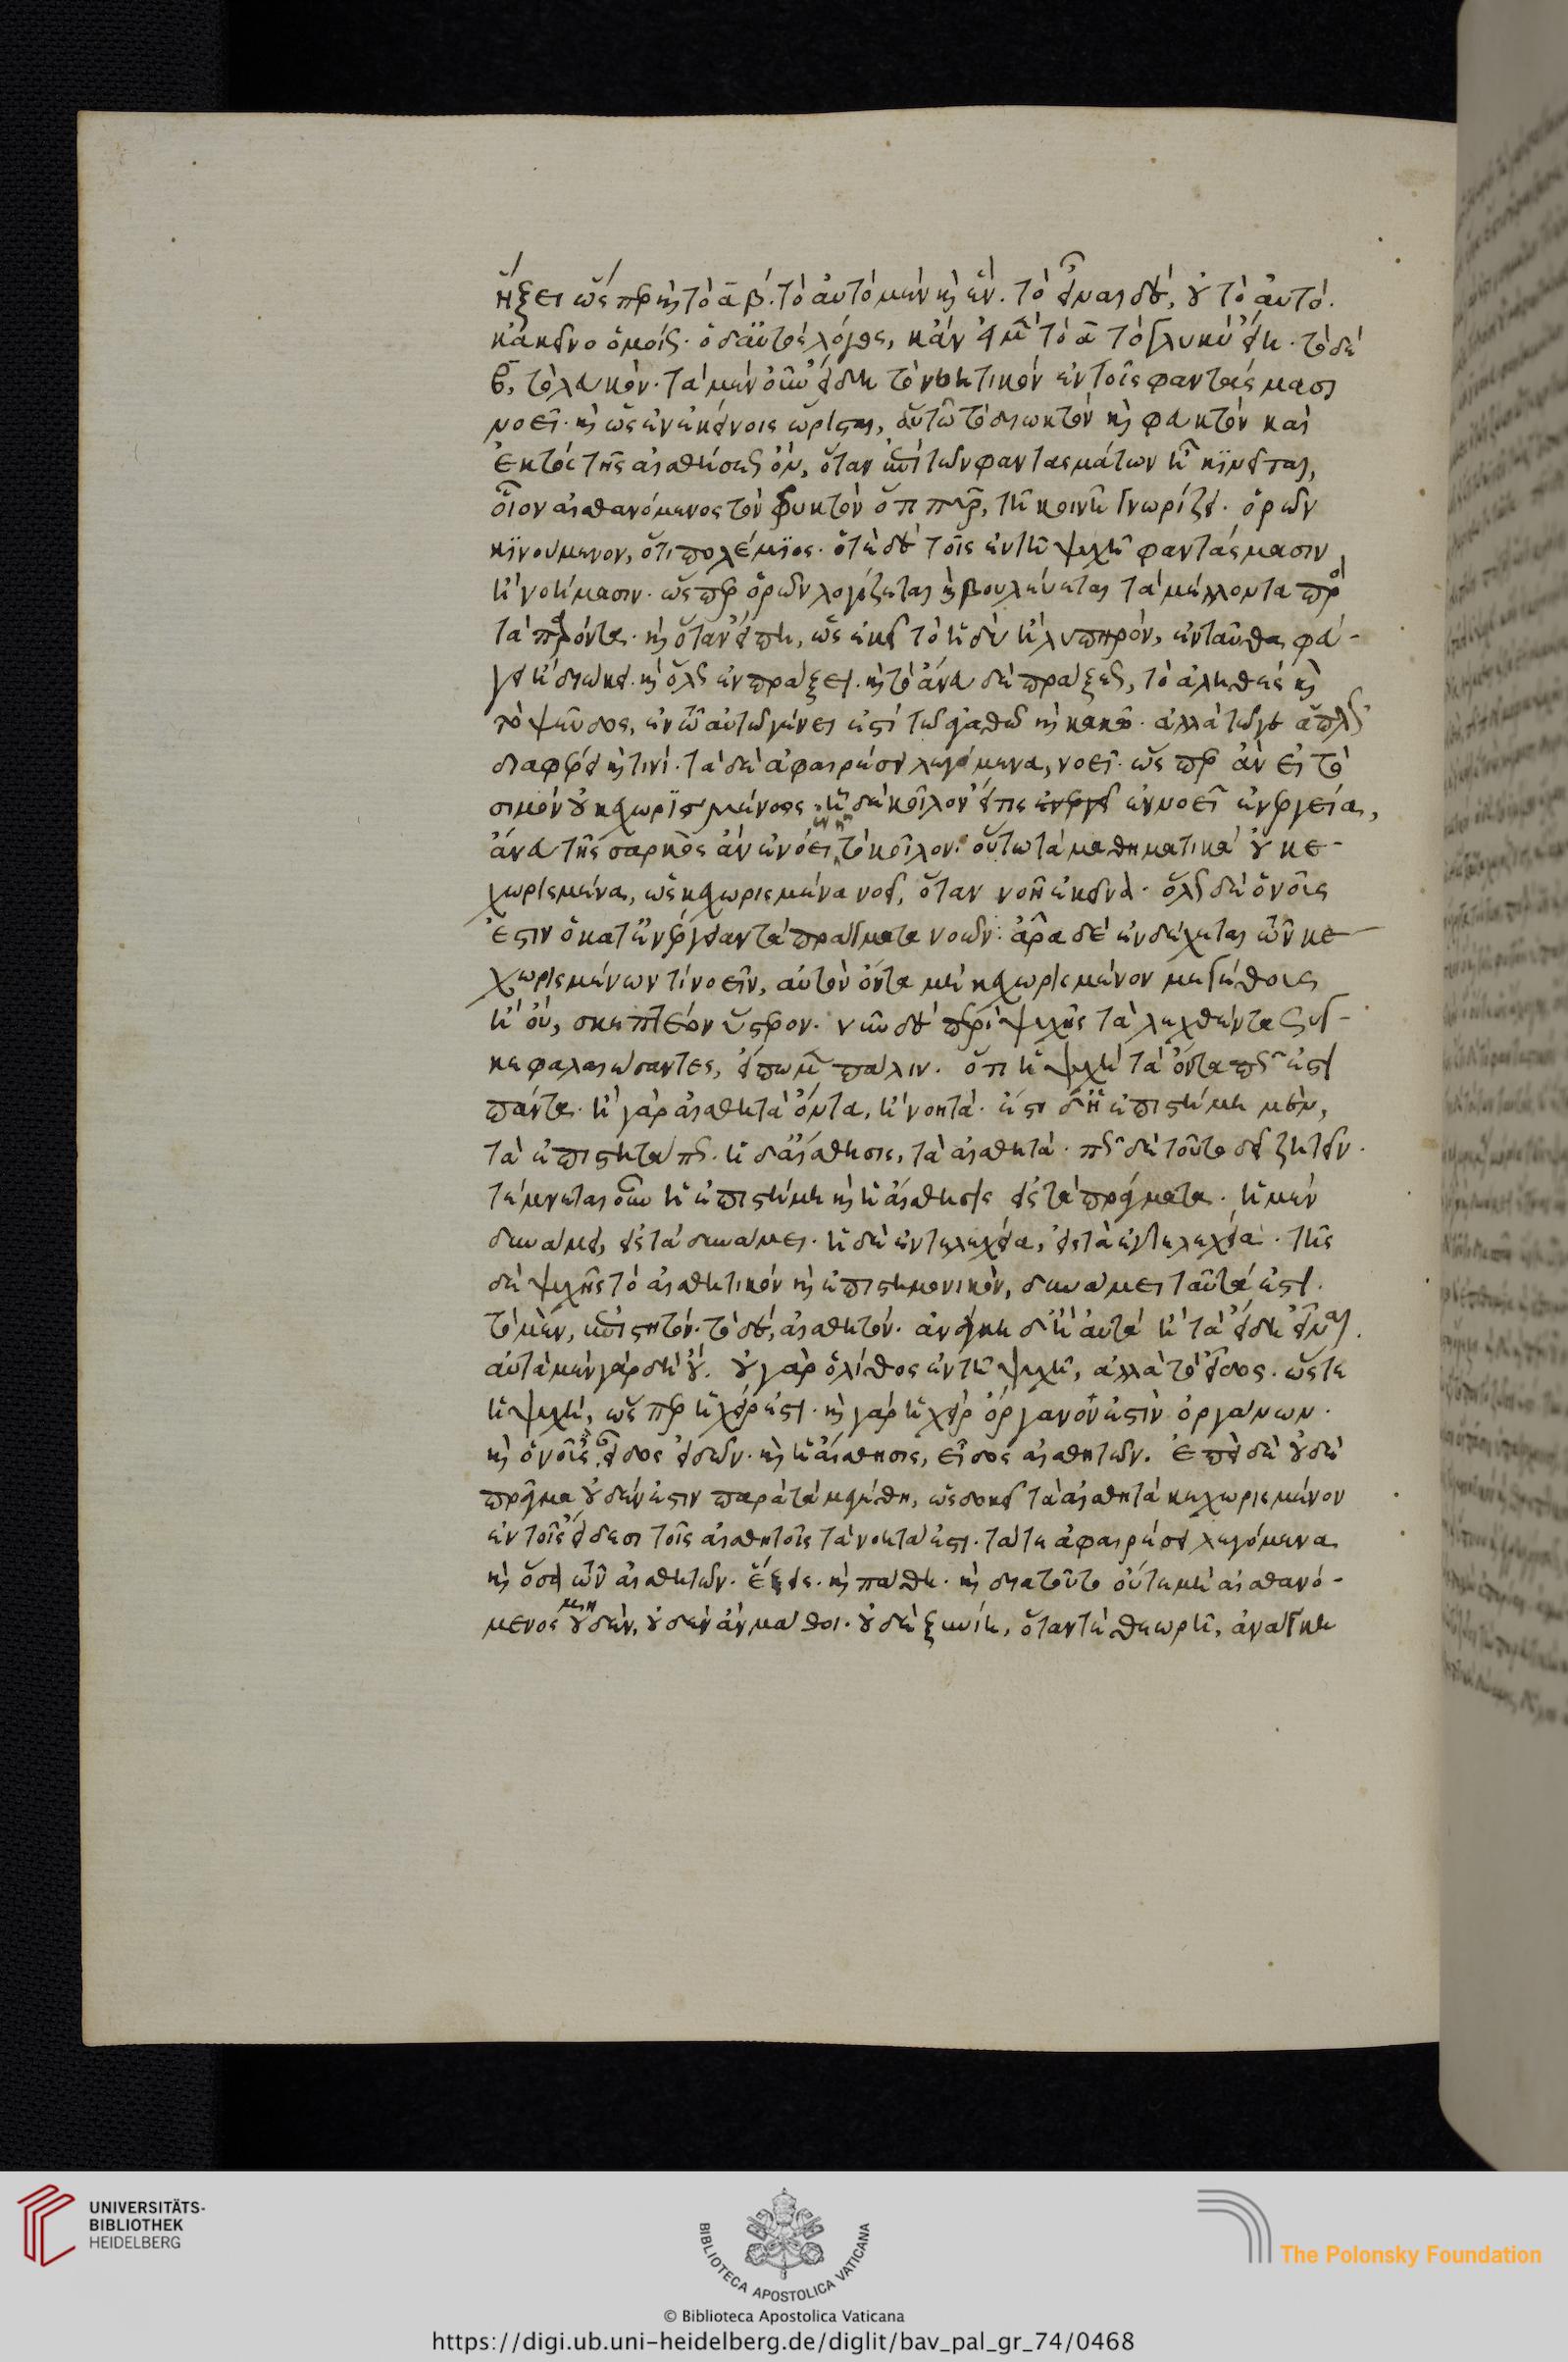 ἥξει ὥσπερ καὶ τὸ α β. τὸ αὐτὸ μὲν καὶ ἕν. τὸ εἶναι δὲ, οὐ τὸ αὐτό.
κἀκεῖνο ὁμοίως. ὁ δ' αὐτὸς λόγος, κἂν εἰ μὲν τὸ α τὸ γλυκὺ εἴη. τὸ δὲ
β, τὸ λευκόν. τὰ μὲν οὖν εἴδη τὸ νοητικὸν ἐν τοῖς φαντάσμασι
νοεῖ. καὶ ὡς ἐν ἐκείνοις ὥρισται, αὐτῷ τὸ διωκτὸν καὶ φευκτὸν καὶ
ἐκτὸς τῆς αἰσθήσεως ὂν, ὅταν ἐπὶ τῶν φαντασμάτων ᾖ κινεῖται,
οἷον αἰσθανόμενος τὸν φυκτὸν ὅτι πῦρ, τῇ κοινῇ γνωρίζει. ὁρῶν
κινούμενον, ὅτι πολέμιος. ὁτὲ δὲ τοῖς ἐν τῇ ψυχῇ φαντάσμασιν
ἢ νοήμασιν. ὥσπερ ὁρῶν λογίζεται καὶ βουλεύεται τὰ μέλλοντα πρὸς
τὰ παρόντα. καὶ ὅταν εἴπῃ, ὡς ἐκεῖ τὸ ἡδὺ ἢ λυπηρὸν, ἐνταῦθα φεύ-
γει ἢ διώκει. καὶ ὅλως ἐν πράξει. καὶ τὸ ἄνευ δὲ πράξεως, τὸ ἀληθὲς καὶ
τὸ ψεῦδος, ἐν τῷ αὐτῷ γένει ἐστὶ τῷ ἀγαθῷ καὶ κακῷ. ἀλλὰ τῷ γε ἁπλῶς
διαφέρει καὶ τινί. τὰ δὲ ἀφαιρέσει λεγόμενα, νοεῖ. ὥσπερ ἂν εἰ τὸ
σιμὸν οὐ κεχωρισμένως. ᾗ δὲ κοῖλον εἴ τις ἐνοεῖ ἐνεργείᾳ,
ἄνευ τῆς σαρκὸς ἂν ἐνόει τὸ κοῖλον. οὕτω τὰ μαθηματικὰ οὐ κε-
χωρισμένα, ὡς κεχωρισμένα νοεῖ, ὅταν νοῇ ἐκεῖνα. ὅλως δὲ ὁ νοῦς
ἐστιν ὁ κατ' ἐνέργειαν τὰ πράγματα νοῶν. ἆρα δὲ ἐνδέχεται τῶν κε-
χωρισμένων τί νοεῖν, αὐτὸν ὄντα μὴ κεχωρισμένον μεγέθους
ἢ οὐ, σκεπτέον ὕστερον. νῦν δὲ περὶ ψυχῆς τὰ λεχθέντα συγ-
κεφαλαιώσαντες, εἴπωμεν πάλιν. ὅτι ἡ ψυχὴ τὰ ὄντα πώς ἐστι
πάντα. ἢ γὰρ αἰσθητὰ ὄντα, ἢ νοητά. ἔστι δ' ἡ ἐπιστήμη μὲν,
τὰ ἐπιστητά πως. ἡ δ' αἴσθησις, τὰ αἰσθητά. πῶς δὲ τοῦτο δεῖ ζητεῖν.
τέμνεται οὖν ἡ ἐπιστήμη καὶ ἡ αἴσθησις εἰς τὰ πράγματα. ἡ μὲν
δυνάμει, εἰς τὰ δυνάμει. ἡ δὲ ἐντελεχεία, εἰς τὰ ἐντελεχεία. τῆς
δὲ ψυχῆς τὸ αἰσθητικὸν καὶ ἐπιστημονικὸν, δυνάμει ταῦτά ἐστι.
τὸ μὲν, ἐπιστητόν. τὸ δὲ, αἰσθητόν. ἀνάγκη δ' ἢ αὐτὰ ἢ τὰ εἴδη εἶναι.
αὐτὰ μὲν γὰρ δὴ οὔ. οὐ γὰρ ὁ λίθος ἐν τῇ ψυχῇ, ἀλλὰ τὸ εἶδος. ὥστε
ἡ ψυχὴ, ὥσπερ ἡ χείρ ἐστι. καὶ γὰρ ἡ χεὶρ ὄργανόν ἐστιν ὀργάνων.
καὶ ὁ νοῦς, εἶδος εἰδῶν. καὶ ἡ αἴσθησις, εἶδος αἰσθητῶν. ἐπεὶ δὲ οὐδὲ
πρᾶγμα οὐδέν ἐστιν παρὰ τὰ μεγέθη, ὡς δοκεῖ τὰ αἰσθητὰ κεχωρισμένον
ἐν τοῖς εἴδεσι τοῖς αἰσθητοῖς τὰ νοητά ἐστι. τά τε ἀφαιρέσει λεγόμενα
καὶ ὅσα τῶν αἰσθητῶν. ἕξεις. καὶ πάθη. καὶ διὰ τοῦτο οὔτε μὴ αἰσθανό-
μενος μὴν οὐδὲν, οὐδὲν ἂν μάθοι. οὐδὲ ξυνίη, ὅταν τὲ θεωρῇ, ἀνάγκη
UNIVERSITÄTS-
BIBLIOTHEK
HEIDELBERG
BIBLIOTECA APOSTOLICA VATICANA
The Polonsky Foundation
© Biblioteca Apostolica Vaticana
https://digi.ub.uni-heidelberg.de/diglit/bav_pal_gr_74/0468